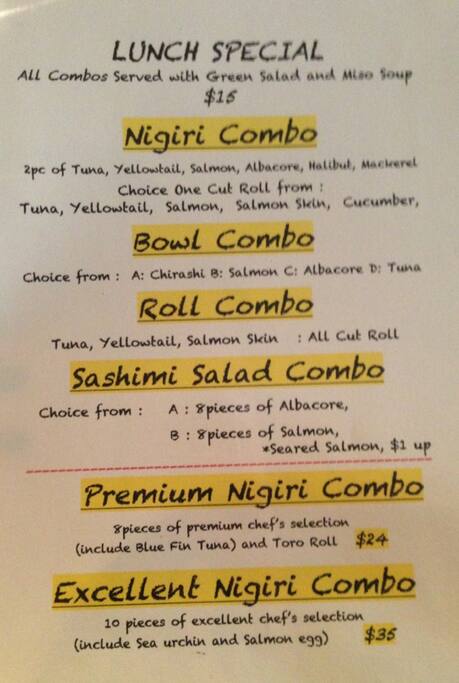 LUNCH SPECIAL
All Combos Served with Green Salad and Miso Soup
$15
Nigiri Combo
2pc of Tuna, Yellowtail, Salmon, Albacore, Halibut, Mackerel
Choice One Cut Roll from :
Tuna, Yellowtail, Salmon, Salmon Skin, Cucumber,
Bowl Combo
Choice from : A: Chirashi B: Salmon C: Albacore D: Tuna
Roll Combo
Tuna, Yellowtail, Salmon Skin : All Cut Roll
Sashimi Salad Combo
Choice from : A : 8pieces of Albacore,
B : 8pieces of Salmon,
*Seared Salmon, $1 up
Premium Nigiri Combo
8pieces of premium chef's selection
(include Blue Fin Tuna) and Toro Roll $24
Excellent Nigiri Combo
10 pieces of excellent chef's selection
(include Sea urchin and Salmon egg) $35